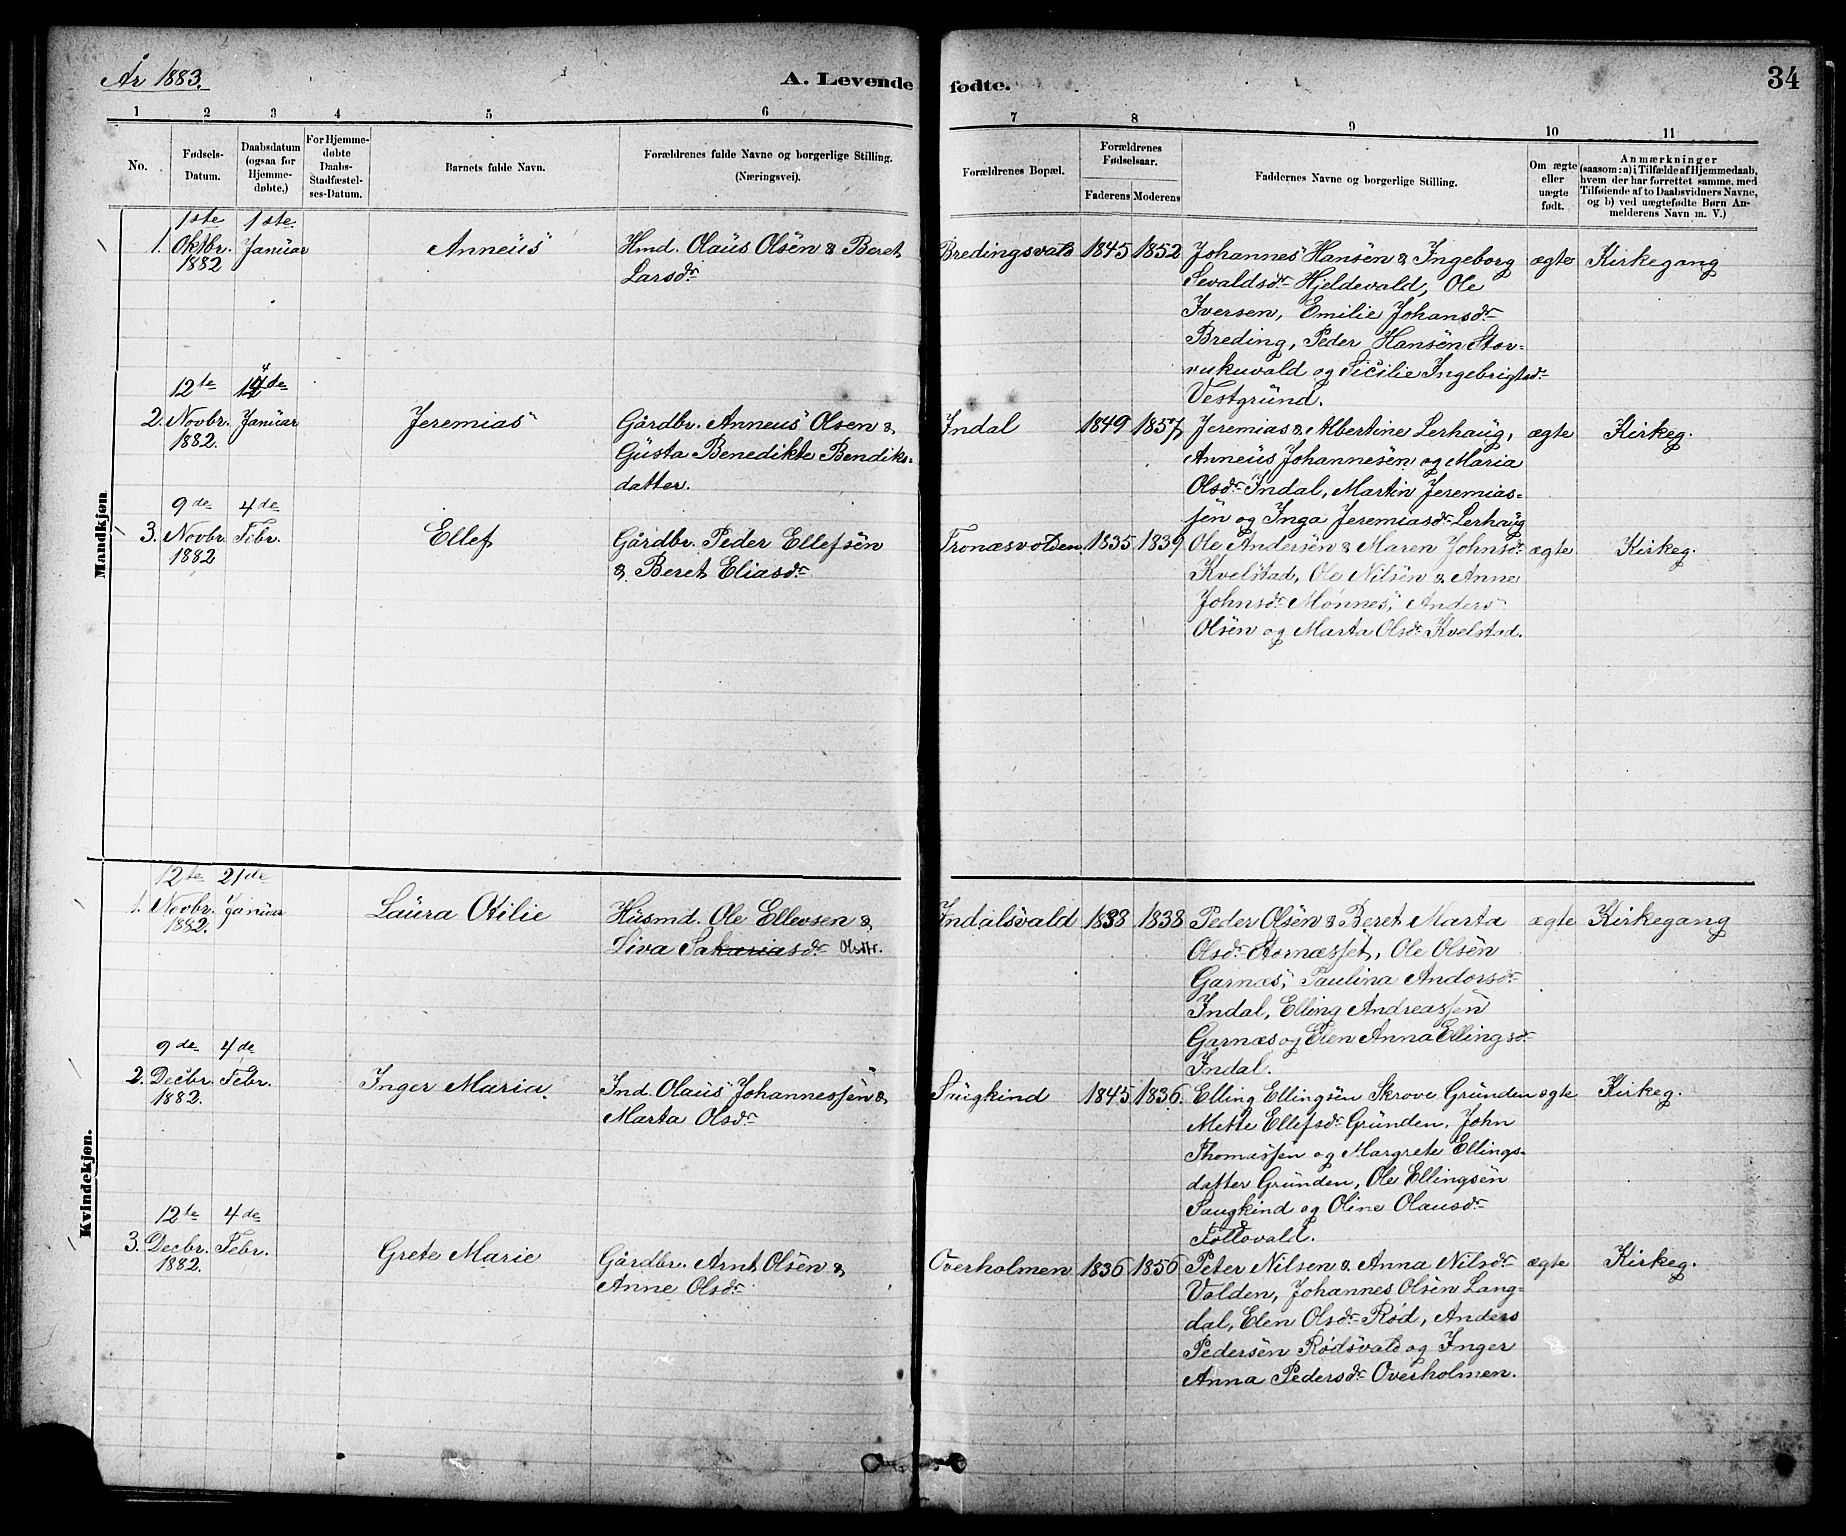 År 1883.
A. Levende
fødte.
34
1 2 3 4 5 6
7 8 9 10 11
No.
Fødsels-
Datum.
Daabsdatum
(ogsaa for
Hjemme-
døbte,)
For Hjemme-
døbte
Daabs-
Stadfæstel-
ses-Datum.
Barnets fulde Navn.
Forældrenes fulde Navne og borgerlige Stilling.
(Næringsvei).
Forældrenes Bopæl.
Forældrenes
Fødselsaar.
Faderens
Moderens
Faddernes Navne og borgerlige Stilling.
Om ægte
eller
uægte
født.
Anmærkninger
(saasom: a) i Tilfælde af Hjemmedaab,
hvem der har forrettet samme, med
Tilføiende af to Daabsvidners Navne,
og b) ved uægtefødte Børn An-
melderens Navn m. V.)
Mandkjøn.
1.
1ste
Oktbr.
1882
1ste
Januar
Anneus
Hmd. Olaus Olsen & Beret
Larsdr
Bredingsvald
1845
1852
Johannes Hansen & Ingeborg
Sevaldsdr Hjeldevald, Ole
Iversen, Emilie Johansdr
Breding, Peder Hansen Stor-
vukuvald og Sicilie Ingebrigtsdr
Vestgrund.
ægte
Kirkegang
2.
12te
Novbr.
1882.
14de
Januar
Jeremias
Gårdbr. Anneus Olsen &
Gusta Benedikte Bendiks-
datter.
Indal
1849
1857
Jeremias & Albertine Lerhaug,
Anneus Johannesen og Maria
Olsdr Indal, Martin Jeremias-
sen og Inga Jeremiasdr Lerhaug
ægte
Kirkeg.
3.
9de
Novbr.
1882
4de
Febr.
Ellef
Gårdbr. Peder Ellefsen
& Beret Eliasdr
Tronæsvolden
1835
1839
Ole Andersen & Maren Johnsdr
Kvelstad, Ole Nilsen & Anne
Johnsdr Mønnes, Anders
Olsen og Marta Olsdr Kvelstad.
ægte
Kirkeg.
Kvindekjøn.
1.
12te
Novbr.
1882.
21de
Januar
Laura Otilie
Husmd. Ole Ellevsen &
Siva Sakariasdr Olsdtr.
Indalsvald
1838
1838
Peder Olsen & Beret Marta
Olsdr Stornæsset, Ole Olsen
Garnæs, Paulina Andorsdr
Indal, Elling Andreassen
Garnæs og Elen Anna Ellingsdr
Indal.
ægte
Kirkegang
2.
9de
Decbr.
1882.
4de
Febr.
Inger Maria.
Ind. Olaus Johannessen &
Marta Olsdr
Saugkind
1845
1836.
Elling Ellingsen Skrove Grunden
Mette Ellefsdr Grunden, John
Thomassen og Margrete Ellings-
datter Grunden, Ole Ellingsen
Saugkind og Oline Olausdr
Follovald.
ægte
Kirkeg.
3.
12te
Decbr.
1882.
4de
Febr.
Grete Marie
Gårdbr. Arnt Olsen &
Anne Olsdr
Overholmen
1836
1856
Peter Nilsen & Anna Nilsdr
Volden, Johannes Olsen Lang-
dal, Elen Olsdr Rød, Anders
Pedersen Rødsvald og Inger
Anna Pedersdr Overholmen.
ægte
Kirkeg.